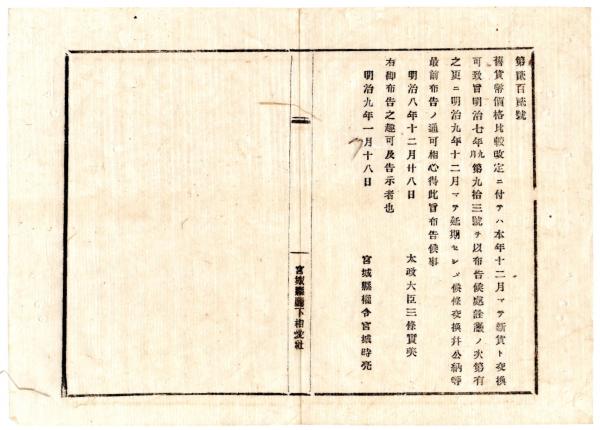 第貳百貳號
舊貨幣價格比較改定ニ付テハ本年十二月マテ新貨ト交換
可致旨明治七年九月第九拾三號ヲ以布告候處詮議ノ次第有
之更ニ明治九年十二月マテ延期セシメ候條交換幷公納等
最前布告ノ通可相心得此旨布告候事
明治八年十二月廿八日
太政大臣三條實美
右御布告之趣可及告示者也
明治九年一月十八日
宮城縣權令宮城時亮
宮城縣廳下相愛社